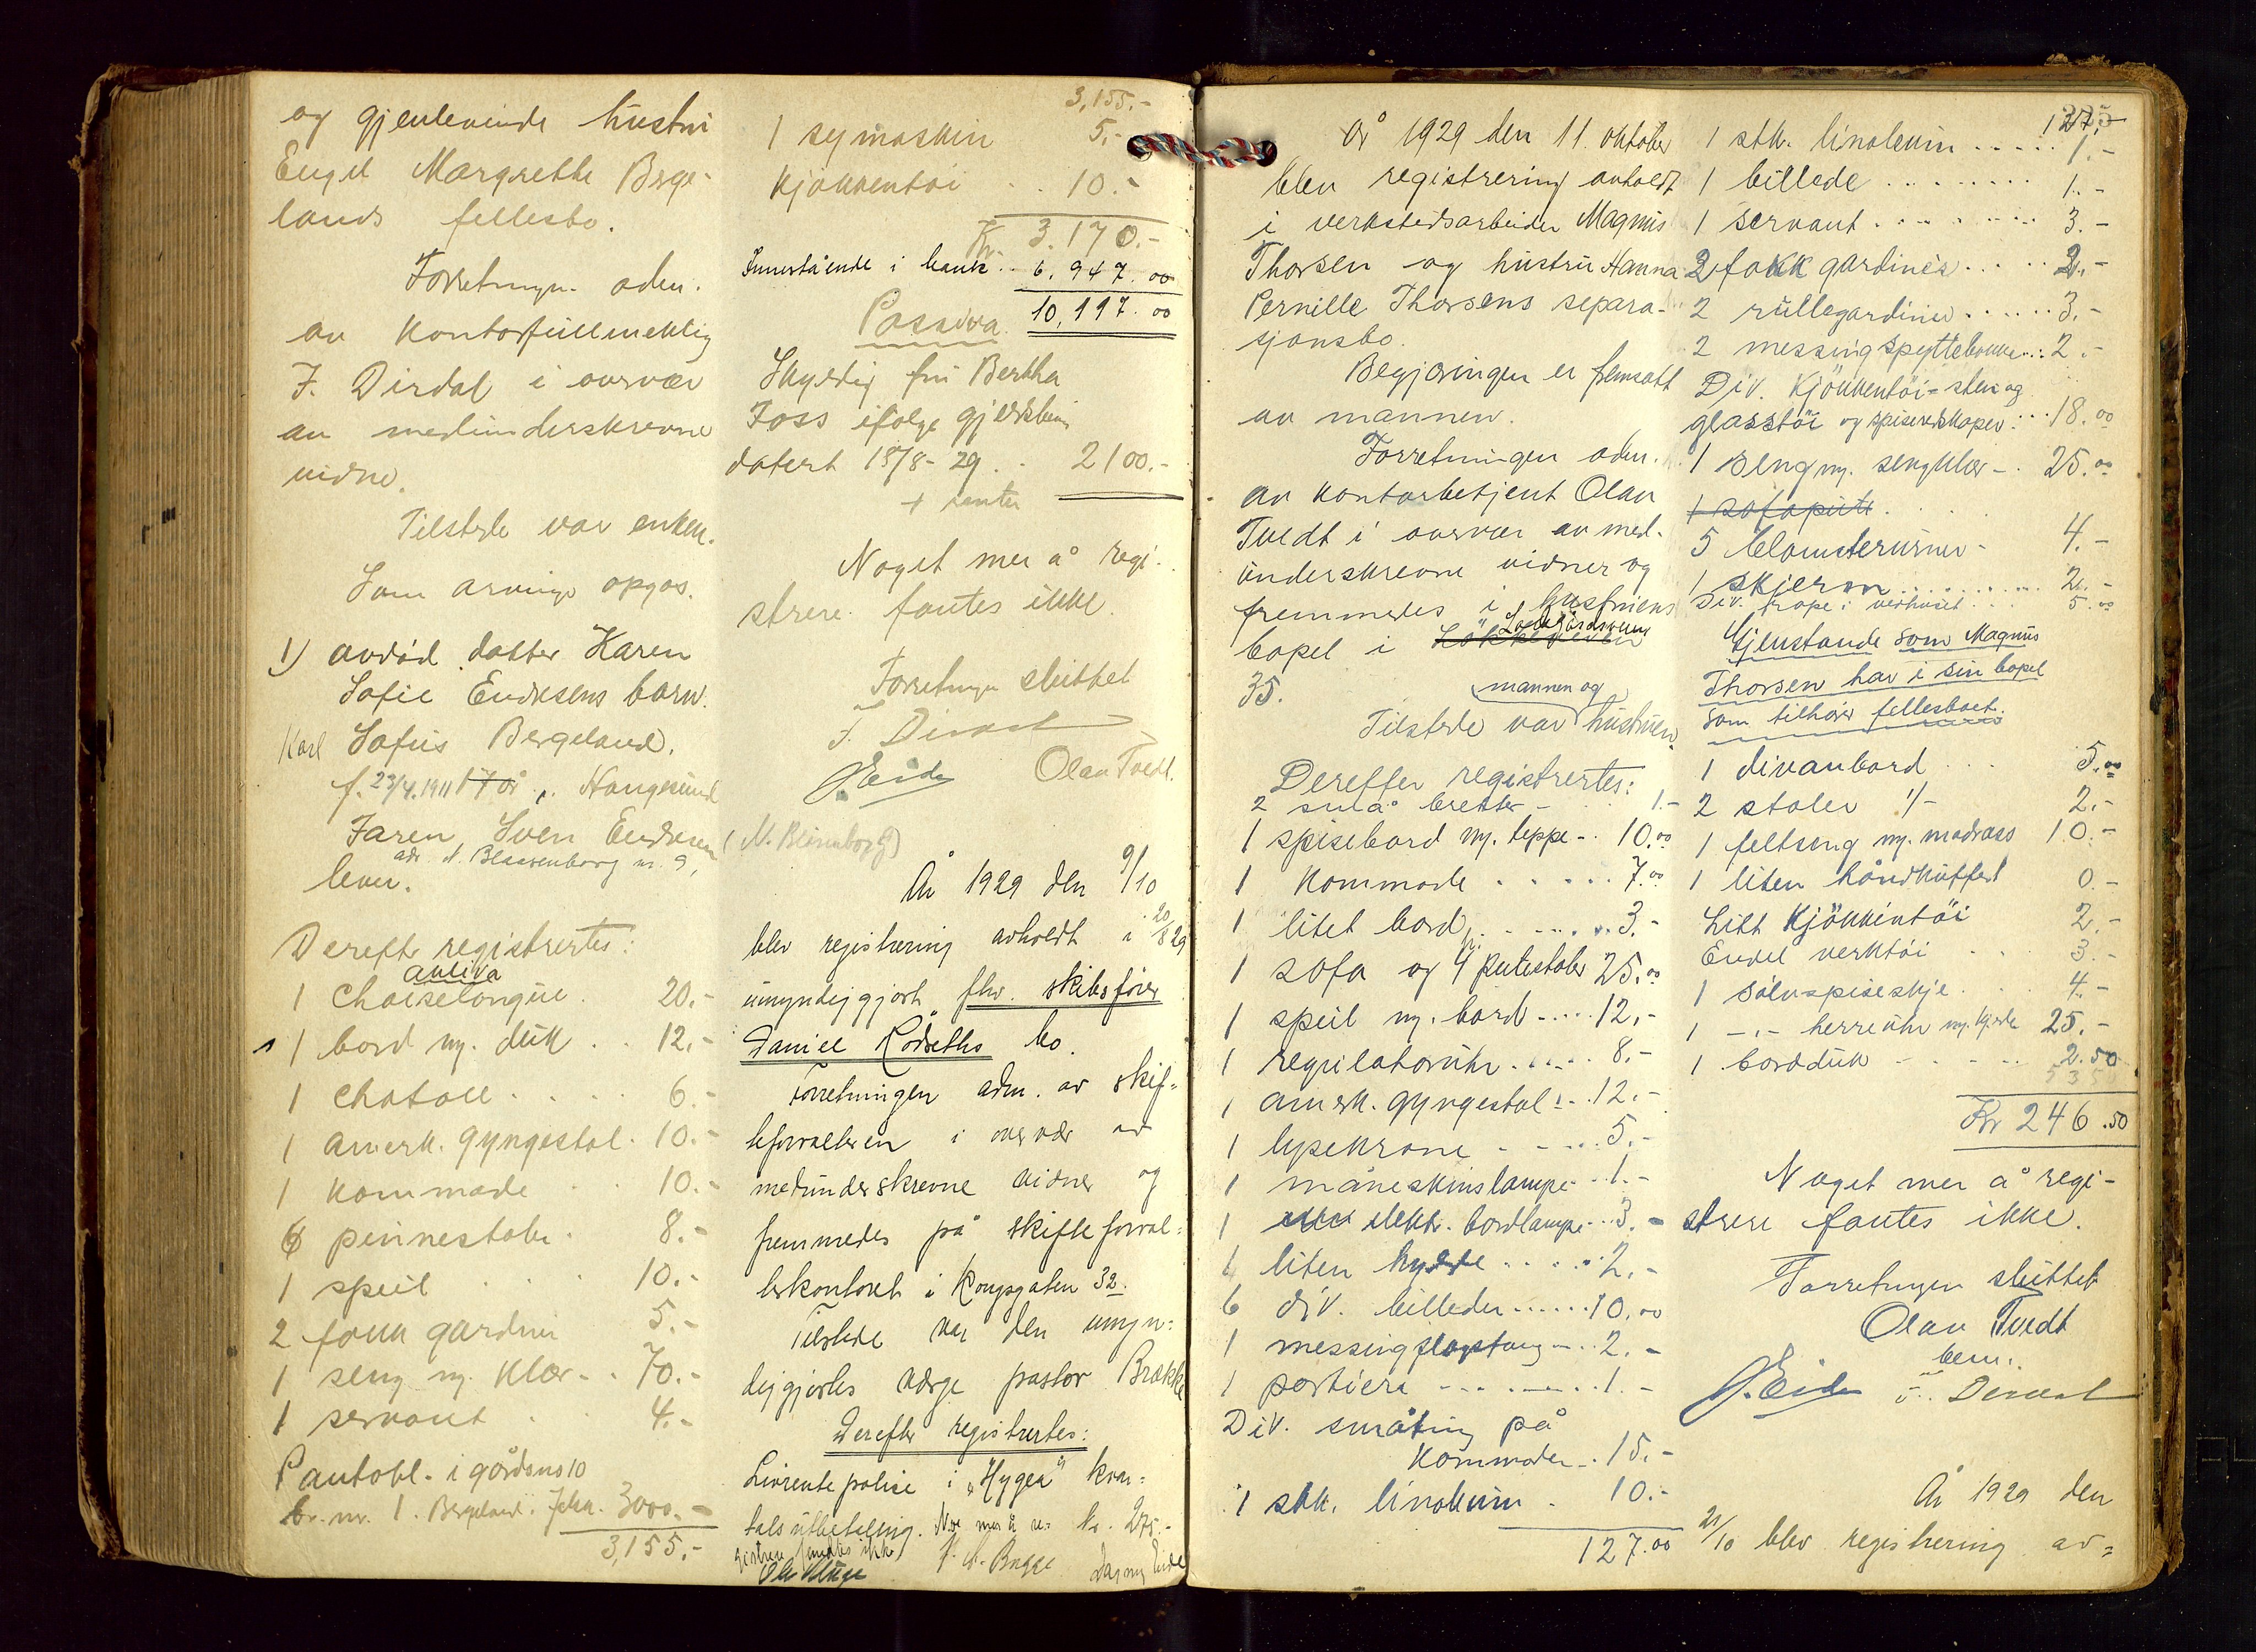 og gjenlevende hustru
Engel Margrethe Berge-
lands fellesbo.
Forretningen adm.
av kontorfullmektig
J. Dirdal i overvær
av medunderskrevne
vidne.
Tilstede var enken.
Som arvinger opgos.
1) avdød datter Karen
Sofie Endresens barn.
Karl Sofus Bergeland.
f. 23/4.1911 17 år, Haugesund
Faren Sven Endresen
adr. N. Blaasenborg nr. 9,
lever.
Derefter registrertes:
Aktiva
1 Chaiselongue . 20.-
1 bord m. duk . . 12.-
1 Chatoll . . . . 6.-
1 amerk. gyngestol . 10.-
1 kommode . . 10.-
6 pinnestoler . 8.-
1 speil . . . 10.-
2 fakk gardiner 5.-
1 seng m. klær - . 70.-
1 servant . . 4.-
Pantobl. i gårdsno 10
br. nr. 1. Bergeland. Jelsa. 3000.-
3,155.-
3,155.-
1 symaskin 5.-
Kjøkkentøi . . 10.-
Kr. 3.170.-
Innestående i bank . . 6.947.00
10,117.00
Passiva
Skyldig fru Bertha
Foss ifølge gjeldsbrev
datert 15/8-29 . . 2100.-
+ renter
Noget mer å regi-
strere fantes ikke.
Forretningen sluttet
J. Dirdal
J. Eide Olav Tvedt.
År 1929 den 9/10
blev registrering avholdt i 20/8 29
umyndiggjort fhv. skibsfører
Daniel Rödseths bo.
Forretningen adm. av skif-
teforvalteren i overvær av
medunderskrevne vidner og
fremmedes på skifteforval-
terkontoret i Kongsgaten 32.
Tilstede var den umyn-
diggjortes værge pastor Brække
Derefter registrertes:
Livrentepolise i "Hygea" kvar-
talsutbetaling. Noe mer å re- kr. 275.-
gistrere fandtes ikke
Dagny Eide
År 1929 den 11. oktober
blev registrering avholdt
i verkstedsarbeider Magnus
Thorsen og hustru Hanna
Pernille Thorsens separa-
sjonsbo.
Begjæringen er fremsatt
av mannen.
Forretningen adm.
av kontorbetjent Olav
Tvedt i overvær av med-
underskrevne vidner og
fremmedes i hustruens
bopel i
35.
mannen og
Tilstede var hustruen.
Derefter registrertes:
2 små bretter - 1.-
1 spisebord m. teppe - . 10.00
1 kommode . . . . . 7.00
1 litet bord . - . . . . 3.-
1 sofa og 4 putestoler 25.00
1 speil m. bord - . . . . 12.-
1 regulatoruhr . . . . 8.-
1 amerk. gyngestol . . 12.-
1 lysekrone . - . . . 5.-
1 måneskinslampe . . 1.-
1 elektr. bordlampe . . 3.-
1 liten hylde . . . . . 2.-
6 div. billeder . . . . . . 10.00
1 messingslagstang . . . 2.-
1 portiere - - - . . - - . 1.-
Div. småting på
kommoder - . 15.-
1 stk. linoleum . 10.-
127.00
285
127,-
1 stk. linoleum . . . . . 1.-
1 billede . . . . . . . . . 1.-
1 servant . . . . . . . . . 3.-
2 fakk gardiner . . . . 2.-
2 rullegardiner . . . . . . 3.-
2 messingspyttebakker . . : 2.-
Div. Kjökkentöi - sten og
glasstöi og spiseredskaper . . . 18.00
1 seng m. sengklær - . 25.00
1 sofapute . . . .
5 blomsterurner - 4.-
1 skjerm . . . . . . . . . 2.-
Div. skrape i vedhuset . . . 5.00
Gjenstande som Magnus
Thorsen har i sin bopel
som tilhører fellesboet.
1 divanbord . . . 5.00
2 stoler 1/- 2.-
1 feltseng m. madrass 10.-
1 liten håndkuffert 0.-
Litt Kjökkentöi 2.-
Endel verktöi . . 3.-
1 sölvspiseskje . . . 4.-
1 -"- herreuhr m. kjede 25.-
1 bordduk - . - . . 2.50
53 50
Kr 246.50
Noget mer å regi-
strere fantes ikke.
Forretningen sluttet
Olav Tvedt
bem.
J. Eide J. Dirdal
År 1929 den
21/10 blev registrering av-